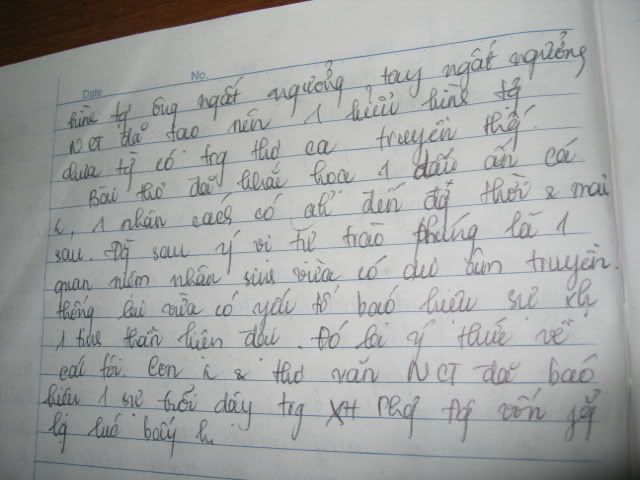 Date No.
hình tg ông ngất ngưởng, tay ngất ngưởng
NCT đã tạo nên 1 kiểu hình tg
chưa từ có trg thơ ca truyền thố.
Bài thơ đã khắc hoạ 1 dấu ấn cá
, 1 nhân cách có a/h đến đg thời & mai
sau. Đg sau ý vị tự trào phúng là 1
quan niệm nhân sinh vừa có dư âm truyền
thống lại vừa có yếu tố báo hiệu sự xh
1 tinh thần hiện đại. Đó là ý thức về
cái tôi. Con & thơ văn NCT đã báo
hiệu 1 sự trỗi dậy trg XH Phg Đg vốn
bấy